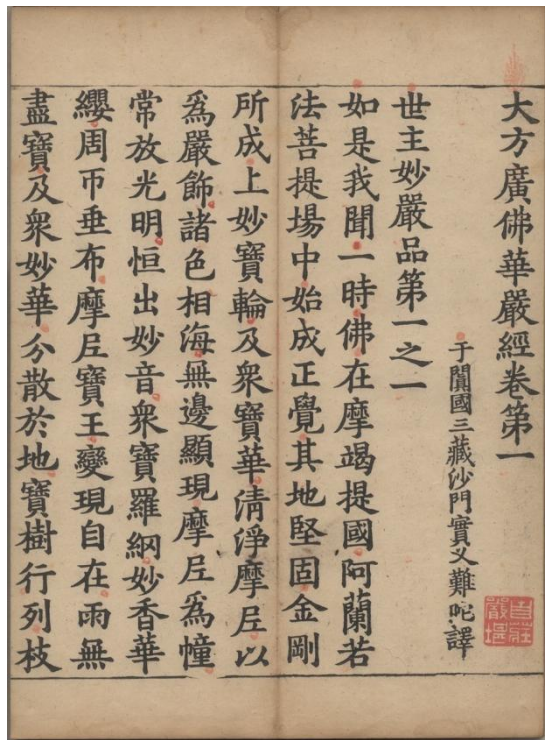 大方廣佛華嚴經卷第一
于闐國三藏沙門實叉難陀譯
世主妙嚴品第一之一
如是我聞一時佛在摩竭提國阿蘭若
法菩提場中始成正覺其地堅固金剛
所成上妙寶輪及衆寶華清淨摩尼以
爲嚴飾諸色相海無邊顯現摩尼爲幢
常放光明恒出妙音衆寶羅網妙香華
纓周帀垂布摩尼寶王變現自在雨無
盡寶及衆妙華分散於地寶樹行列枝